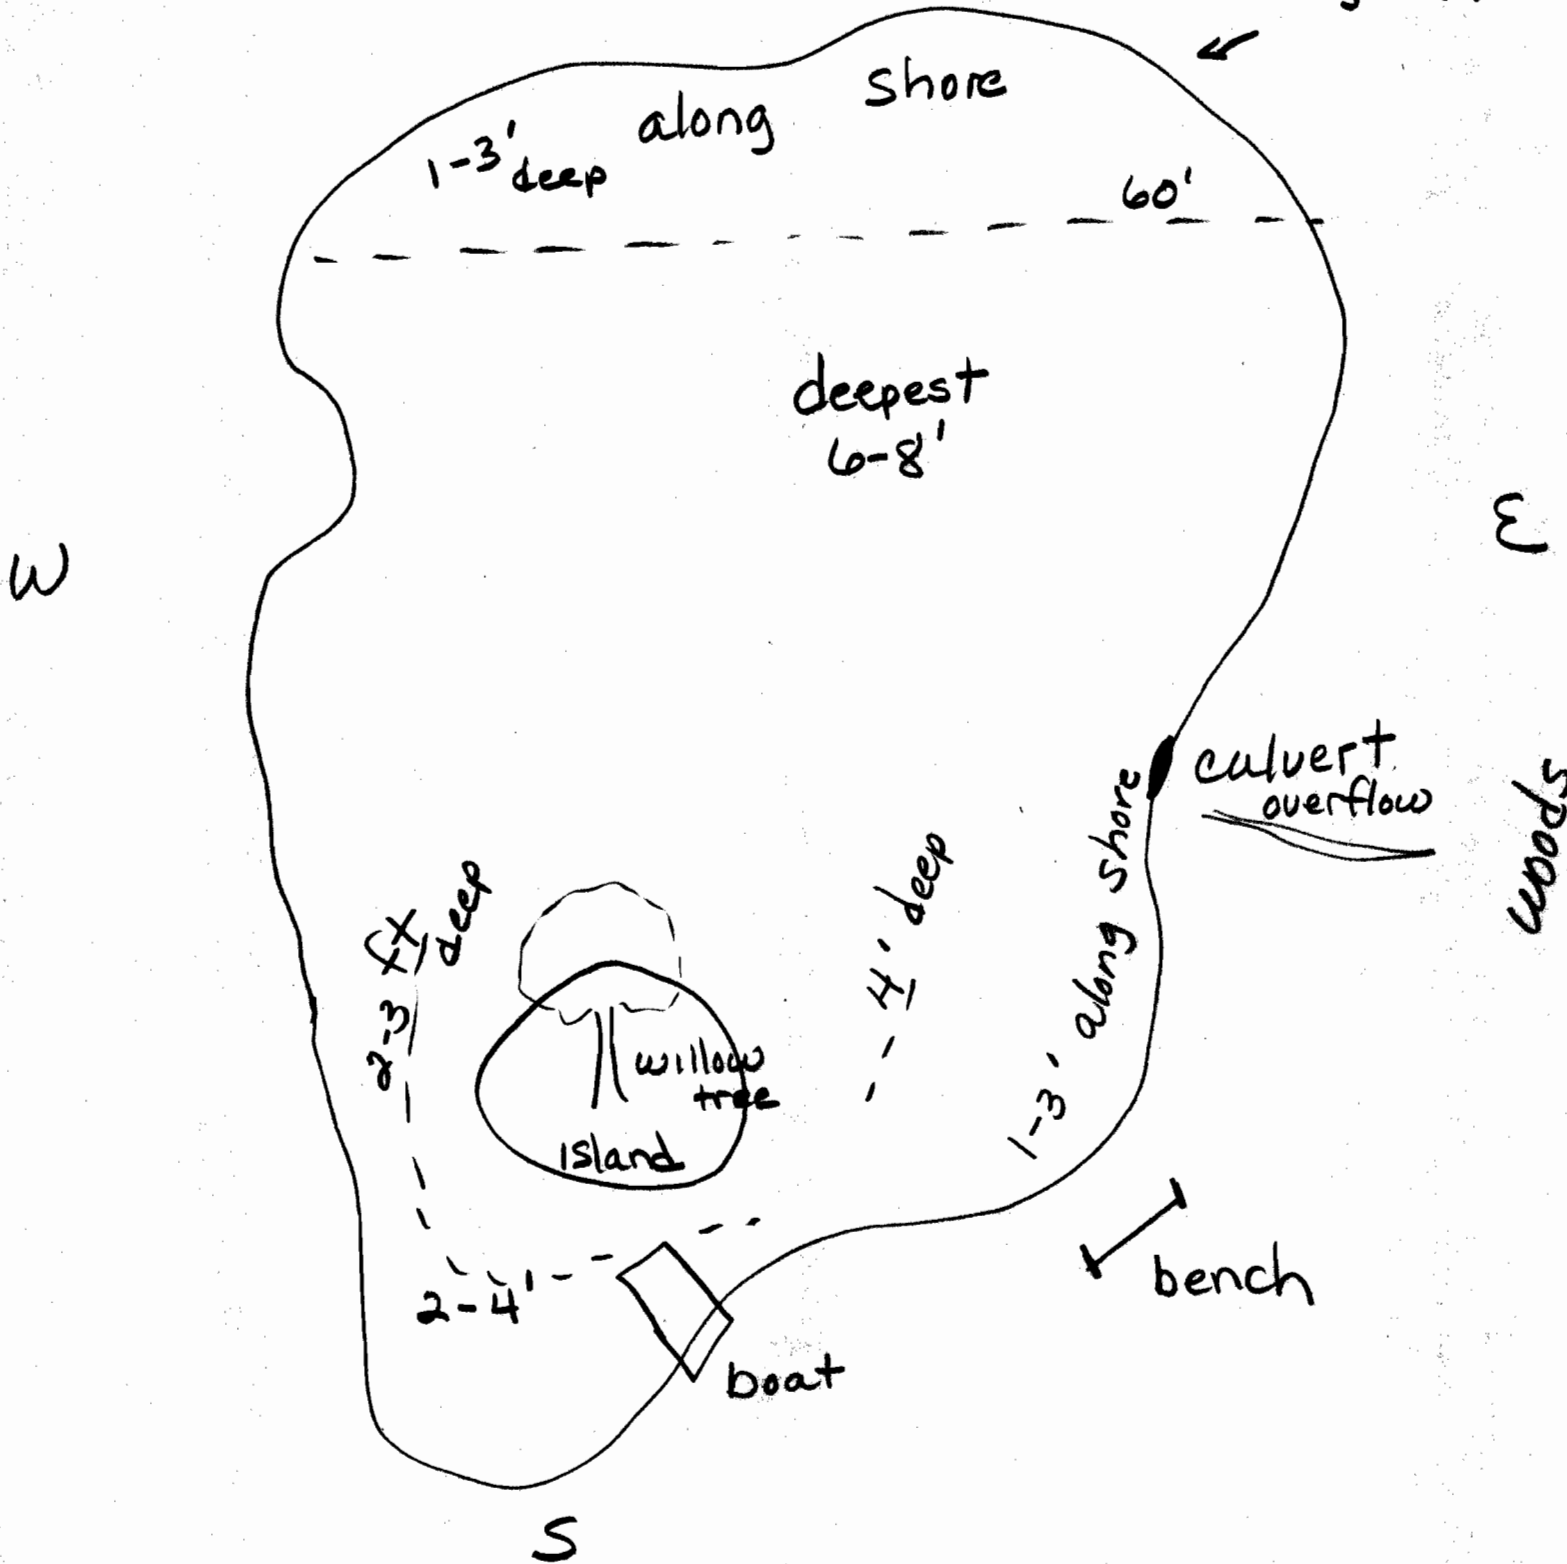 shore
along
1-3'
deep
60'
deepest
6-8'
W
E
culvert
overflow
woods
2-3 ft
deep
4' deep
1-3' along shore
willow
tree
island
2-4'
bench
boat
S